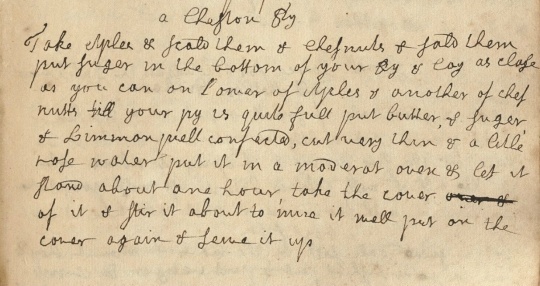 a Cheston Py
Take Aples & scald them & Chesnuts & scald them
put suger in the bottom of your Py & lay as close
as you can on Lower of Aples & another of ches
nutts till your py is quite full put butter, & suger
& Limmon pell confected, cut very thin & a litle
rose water put it in a moderat oven & let it
stand about one hour take the cover
of it & stir it about to mixe it well put on the
cover again & serve it up